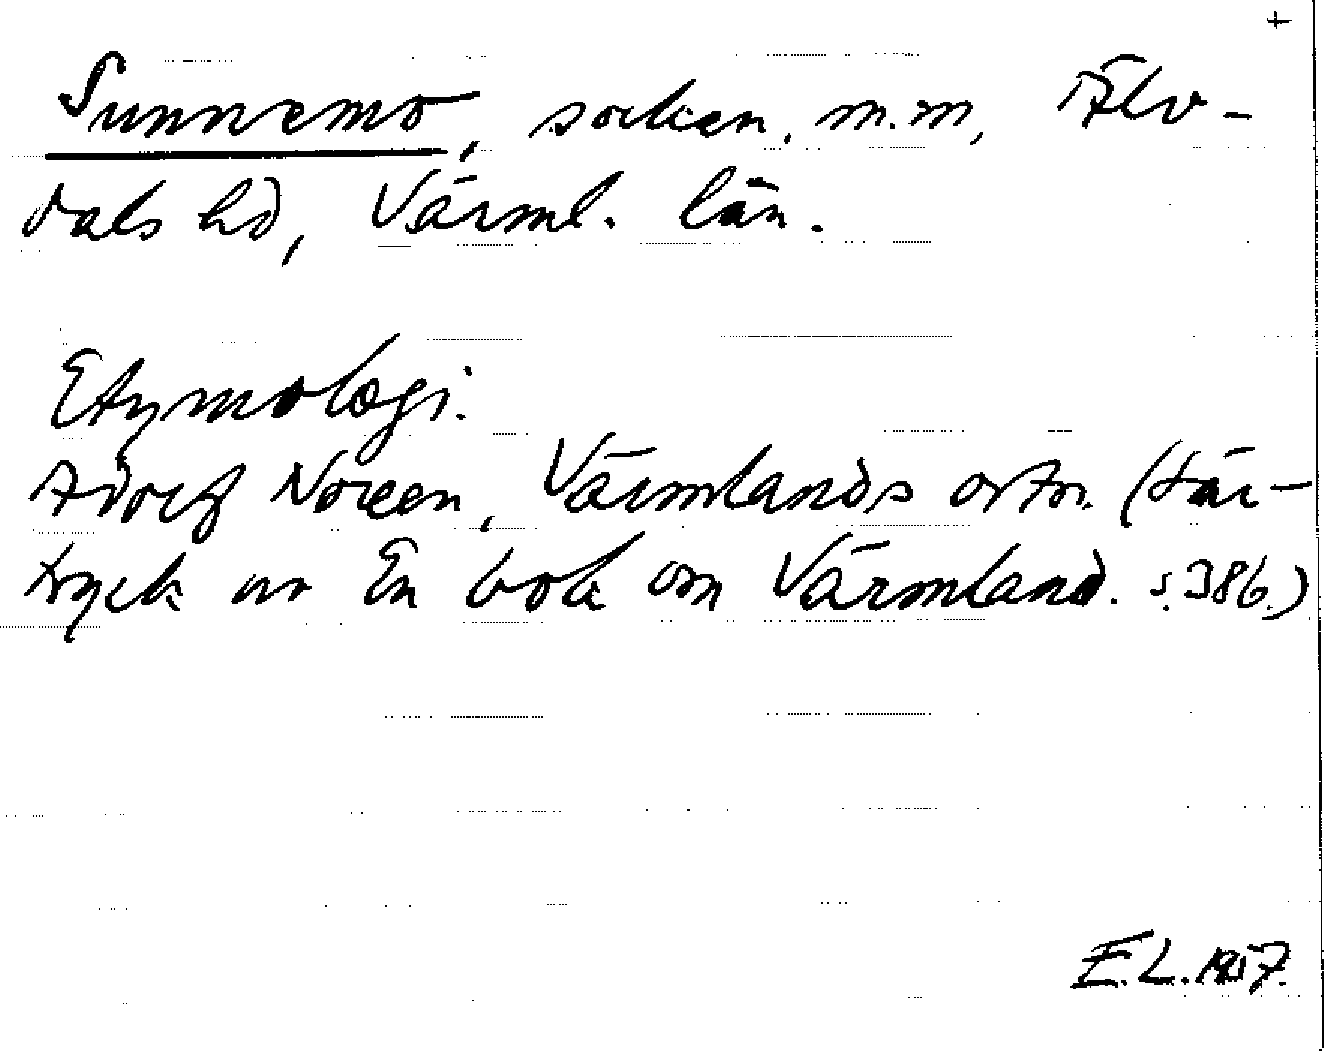 +
Sunnemo, socken, m.m, Älv-
dals hd, Värml. län.
Etymologi.
Adolf Noreen, Värmlands ortn. (Sär-
tryck av En bok om Värmland. s. 386.)
E.L. 1957.